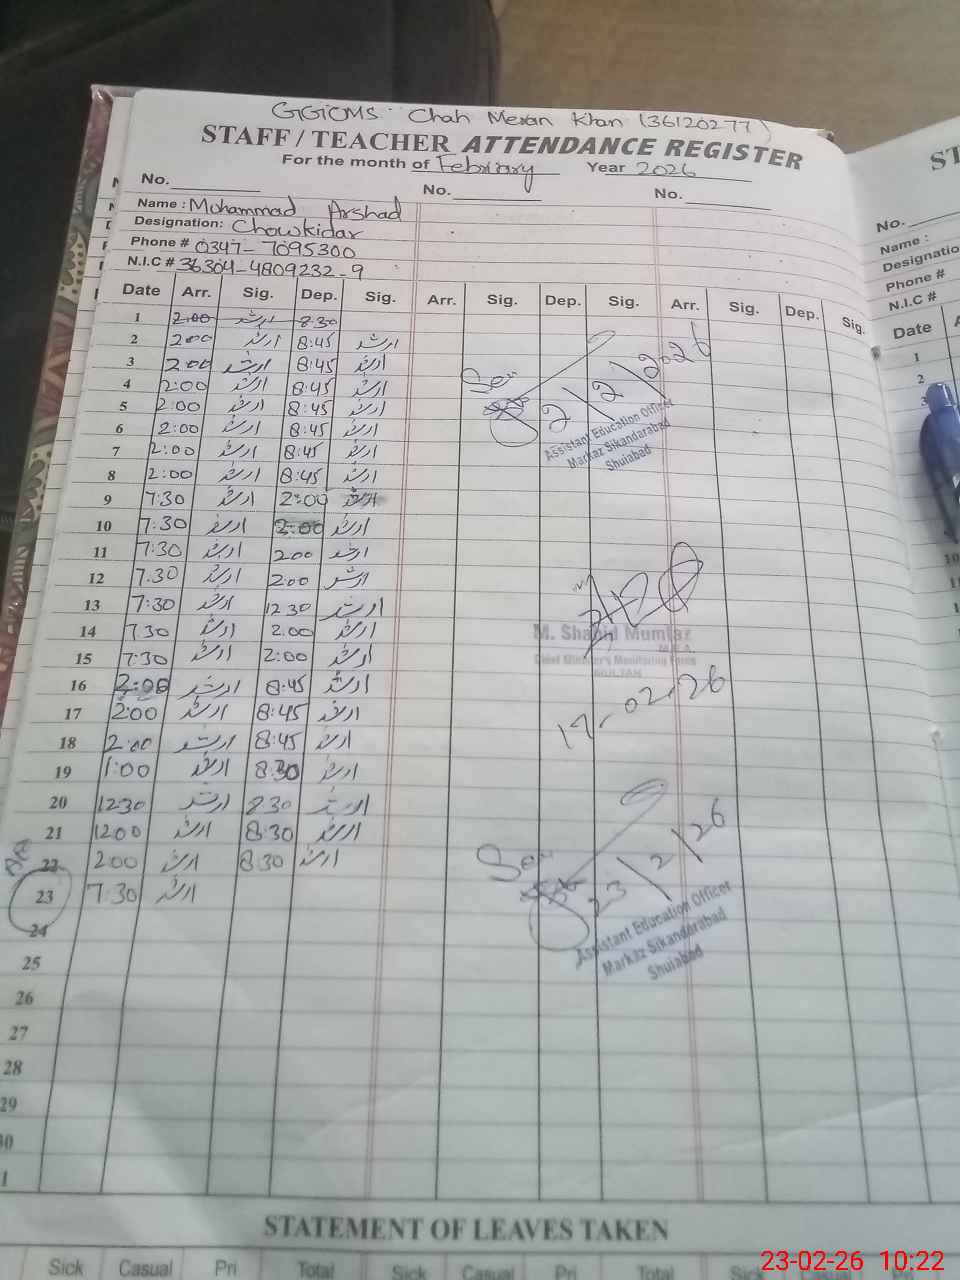 GGCMS Chah Meran Khan (36120277)
STAFF / TEACHER ATTENDANCE REGISTER
For the month of February Year 2026
No. No. No.
Name : Mohammad Arshad
Designation: Chowkidar
Phone # 0347-7095300
N.I.C # 36304-4809232-9
Date Arr. Sig. Dep. Sig. Arr. Sig. Dep. Sig. Arr. Sig. Dep. Sig.
1 2:00 ارشد 8:30
2 2:00 ارشد 8:45 ارشد
3 2:00 ارشد 8:45 ارشد
4 2:00 ارشد 8:45 ارشد
5 2:00 ارشد 8:45 ارشد
6 2:00 ارشد 8:45 ارشد
7 2:00 ارشد 8:45 ارشد
8 2:00 ارشد 8:45 ارشد
9 7:30 ارشد 2:00 ارشد
10 7:30 ارشد 2:00 ارشد
11 7:30 ارشد 2:00 ارشد
12 7:30 ارشد 2:00 ارشد
13 7:30 ارشد 12:30 ارشد
14 7:30 ارشد 2:00 ارشد
15 7:30 ارشد 2:00 ارشد
16 2:00 ارشد 8:45 ارشد
17 2:00 ارشد 8:45 ارشد
18 2:00 ارشد 8:45 ارشد
19 1:00 ارشد 8:30 ارشد
20 12:30 ارشد 8:30 ارشد
21 12:00 ارشد 8:30 ارشد
22 2:00 ارشد 8:30 ارشد
23 7:30 ارشد
24
25
26
27
28
29
30
1
Seen
2/2/2026
Assistant Education Officer
Markaz Sikandarabad
Shujabad
M. Shahid Mumtaz
M.E.A
Chief Minister's Monitoring Force
MULTAN
17-02-26
Seen
23/2/26
Assistant Education Officer
Markaz Sikandarabad
Shujabad
STATEMENT OF LEAVES TAKEN
Sick Casual Pri Total Sick Casual Pri Total Sick Casual
ST
No.
Name :
Designatio
Phone #
N.I.C #
Date
1
2
3
10
23-02-26 10:22